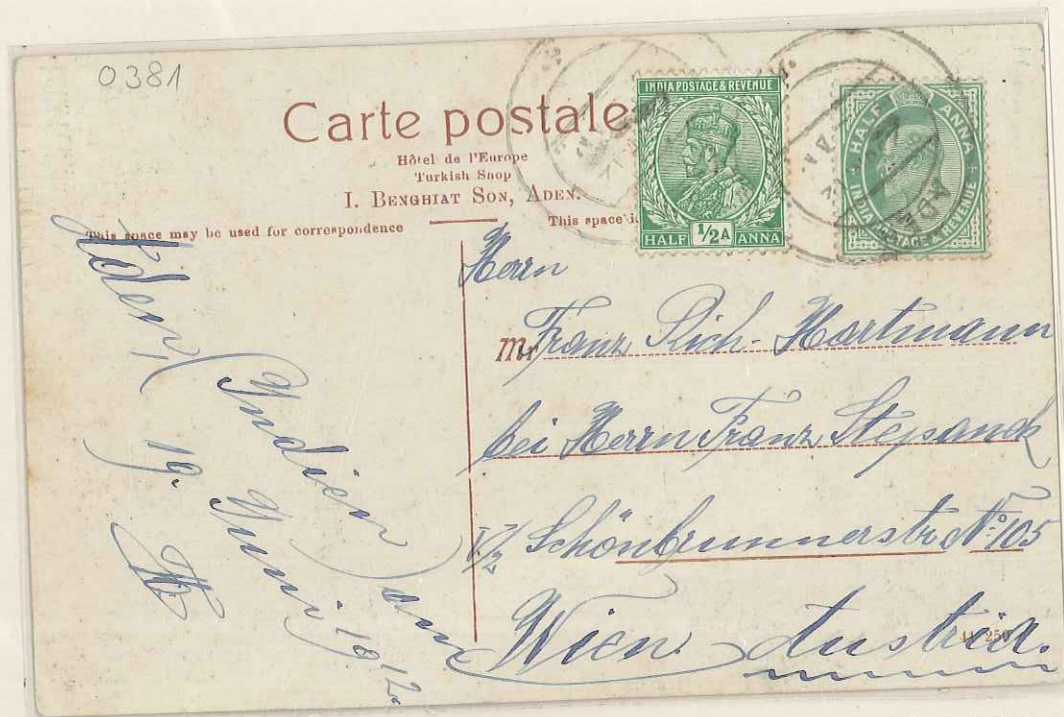 0381
Carte postale
Hôtel de l'Europe
Turkish Snop
I. BENGHIAT SON, ADEN.
This space may be used for correspondence
This space i
INDIA POSTAGE & REVENUE
HALF ½A ANNA
HALF ANNA
INDIA POSTAGE & REVENUE
ADEN
Aden, (Indien) am
19. Juni 1912.
Herrn
Mr Franz Rich. Hartmann
bei Herrn Franz Stepanek
V/2 Schönbrunnerstr. No 105
Wien. Austria.